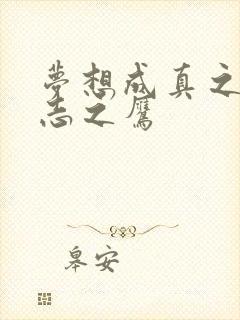 夢想成真之
志之鷹
皋安